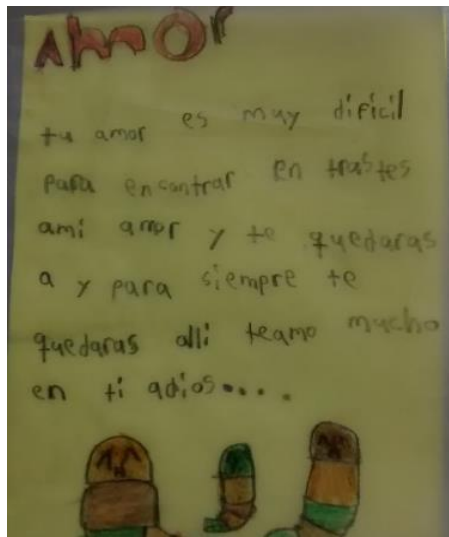 AmOr
tu amor es muy dificil
para encontrar en trastes
ami amor y te quedaras
a y para siempre te
quedaras alli teamo mucho
en ti adios....